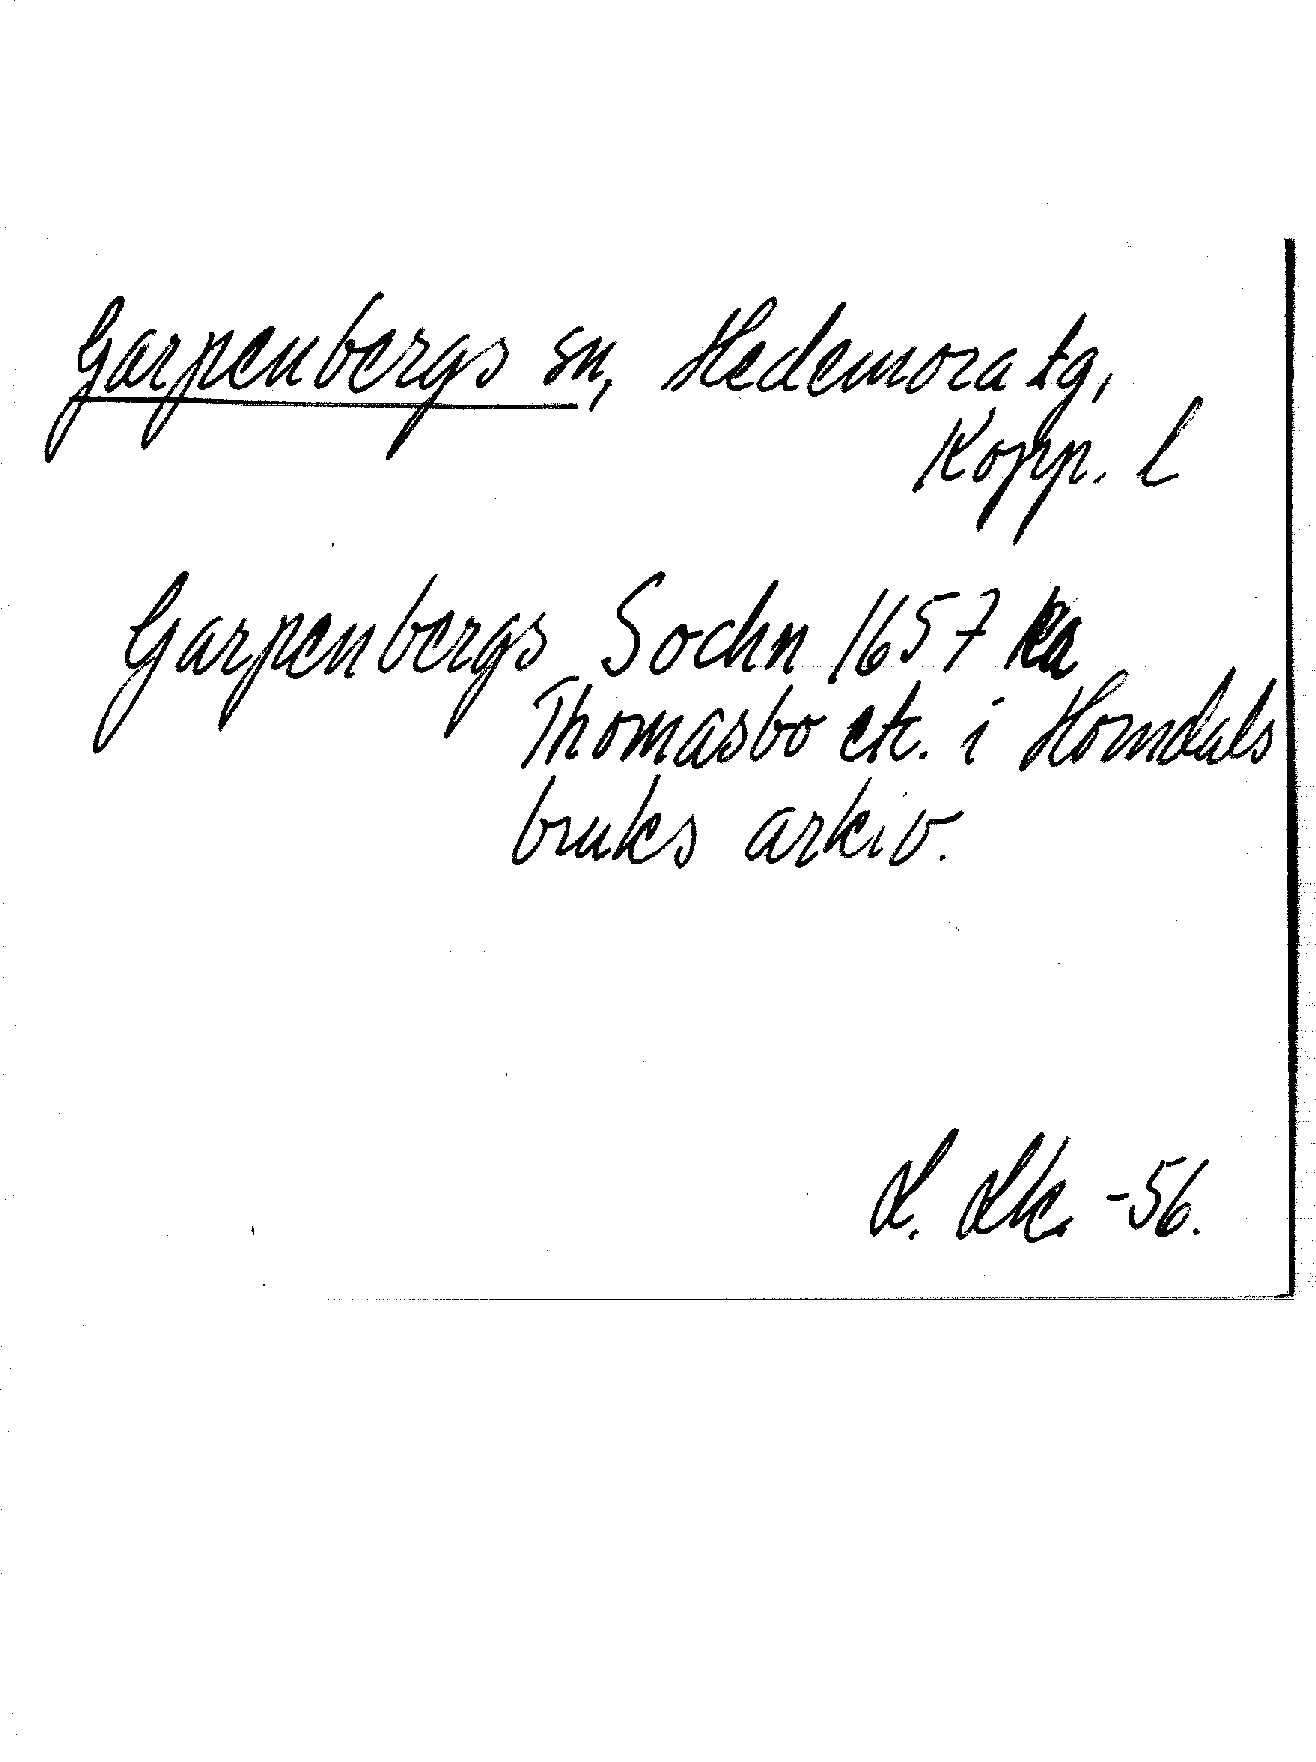 Garpenbergs sn, Hedemora tg,
Kopp. l
Garpenbergs Sochn 1657 ka
Thomasbo etc. i Horndals
bruks arkiv.
L. Lk. -56.